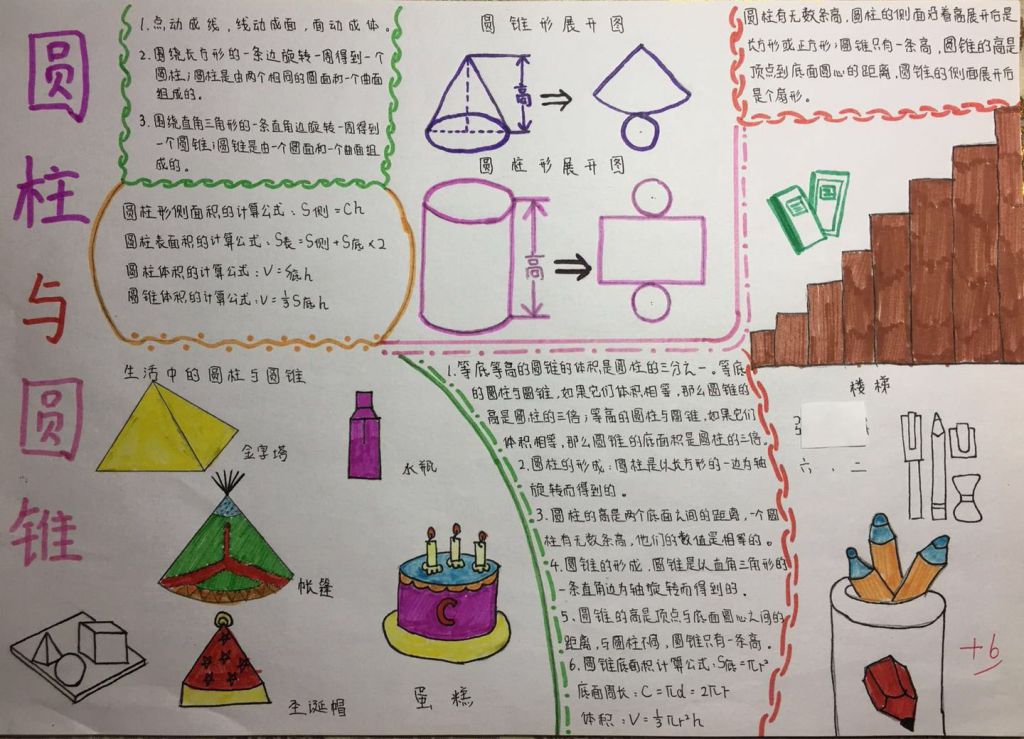 圆柱与圆锥
1.点动成线，线动成面，面动成体。
2.围绕长方形的一条边旋转一周得到一个
圆柱；圆柱是由两个相同的圆面和一个曲面
组成的。
3.围绕直角三角形的一条直角边旋转一周得到
一个圆锥；圆锥是由一个圆面和一个曲面组
成的。
圆柱形侧面积的计算公式：S侧=Ch
圆柱表面积的计算公式：S表=S侧+S底×2
圆柱体积的计算公式：V=S底h
圆锥体积的计算公式：V=⅓S底h
圆锥形展开图
高
圆柱形展开图
高
圆柱有无数条高，圆柱的侧面沿着高展开后是
长方形或正方形；圆锥只有一条高，圆锥的高是
顶点到底面圆心的距离，圆锥的侧面展开后
是个扇形。
楼梯
六、二
生活中的圆柱与圆锥
金字塔
水瓶
帐篷
圣诞帽
C
蛋糕
1.等底等高的圆锥的体积是圆柱的三分之一。等底
的圆柱与圆锥，如果它们体积相等，那么圆锥的
高是圆柱的三倍；等高的圆柱与圆锥，如果它们
体积相等，那么圆锥的底面积是圆柱的三倍。
2.圆柱的形成：圆柱是以长方形的一边为轴
旋转而得到的。
3.圆柱的高是两个底面之间的距离，一个圆
柱有无数条高，他们的数值是相等的。
4.圆锥的形成，圆锥是以直角三角形的
一条直角边为轴旋转而得到的.
5.圆锥的高是顶点与底面圆心之间的
距离，与圆柱不同，圆锥只有一条高。
6.圆锥底面积计算公式：S底=πr²
底面周长：C=πd=2πr
体积：V=⅓πr²h
+6